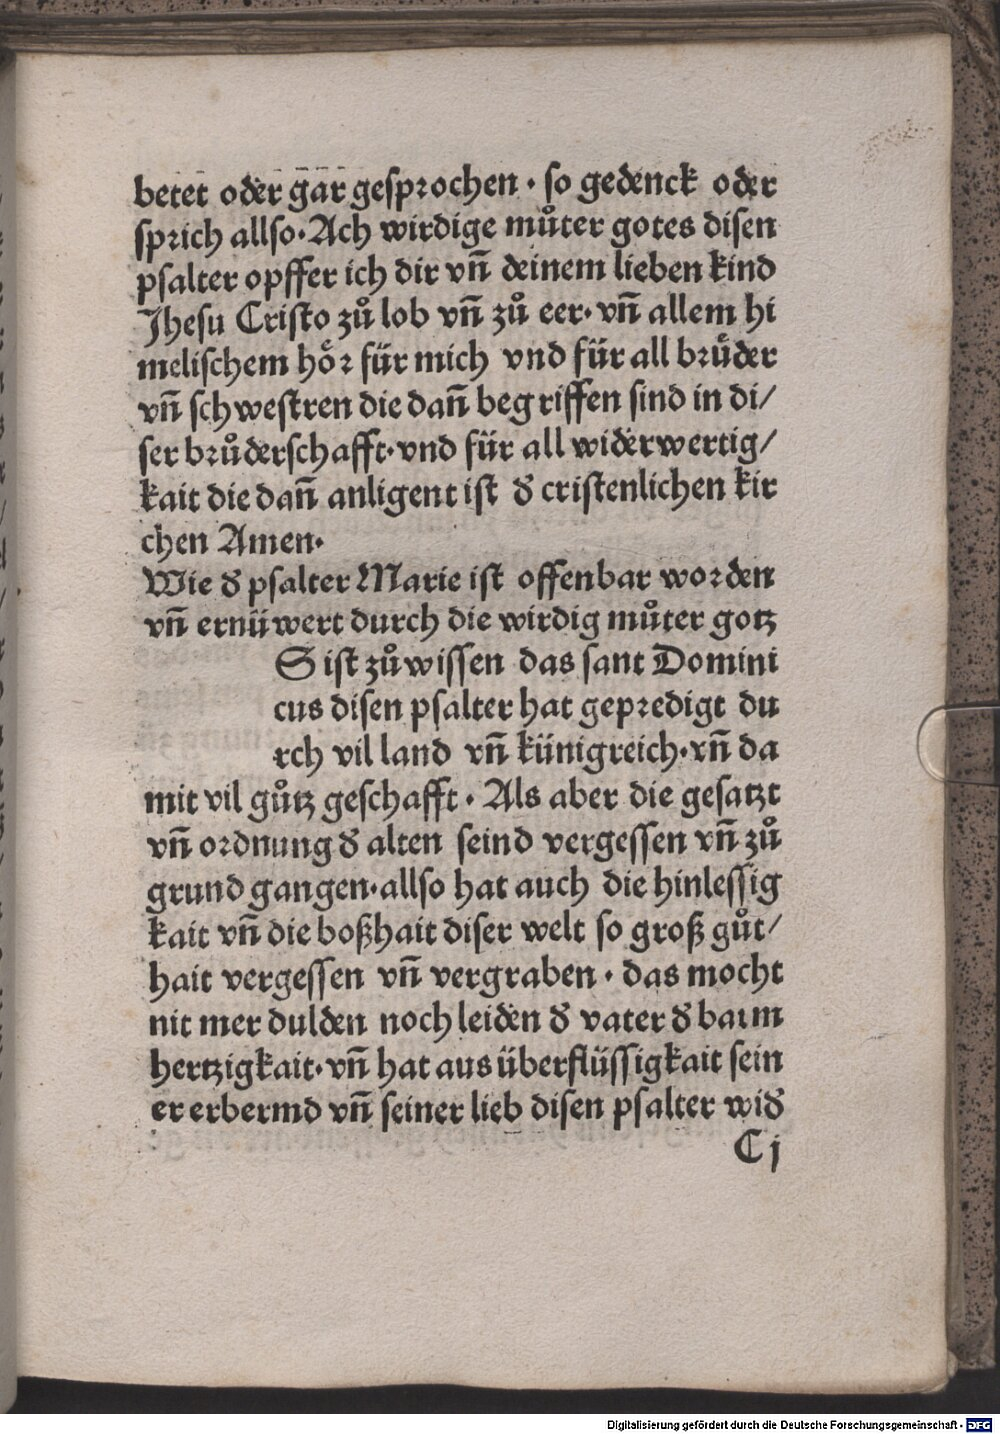 betet oder gar gesprochen · so gedenck oder
sprich allso · Ach wirdige můter gotes disen
psalter opffer ich dir vn̄ deinem lieben kind
Jhesu Cristo zů lob vn̄ zů eer · vn̄ allem hi
melischem hoͤr für mich vnd für all bruͤder
vn̄ schwestren die dan̄ begriffen sind in di/
ser brůderschafft · vnd für all widerwertig/
kait die dan̄ anligent ist ď cristenlichen kir
chen Amen ·
Wie ď psalter Marie ist offenbar worden
vn̄ ernüwert durch die wirdig můter gotz
S ist zů wissen das sant Domini
cus disen psalter hat gepredigt du
rch vil land vn̄ künigreich · vn̄ da
mit vil gůtz geschafft · Als aber die gesatzt
vn̄ ordnung ď alten seind vergessen vn̄ zů
grund gangen · allso hat auch die hinlessig
kait vn̄ die boßhait diser welt so groß gůt/
hait vergessen vn̄ vergraben · das mocht
nit mer dulden noch leiden ď vater ď barm
hertzigkait · vn̄ hat aus überflüssigkait sein
er erbermd vn̄ seiner lieb disen psalter wiď
C j
Digitalisierung gefördert durch die Deutsche Forschungsgemeinschaft - DFG